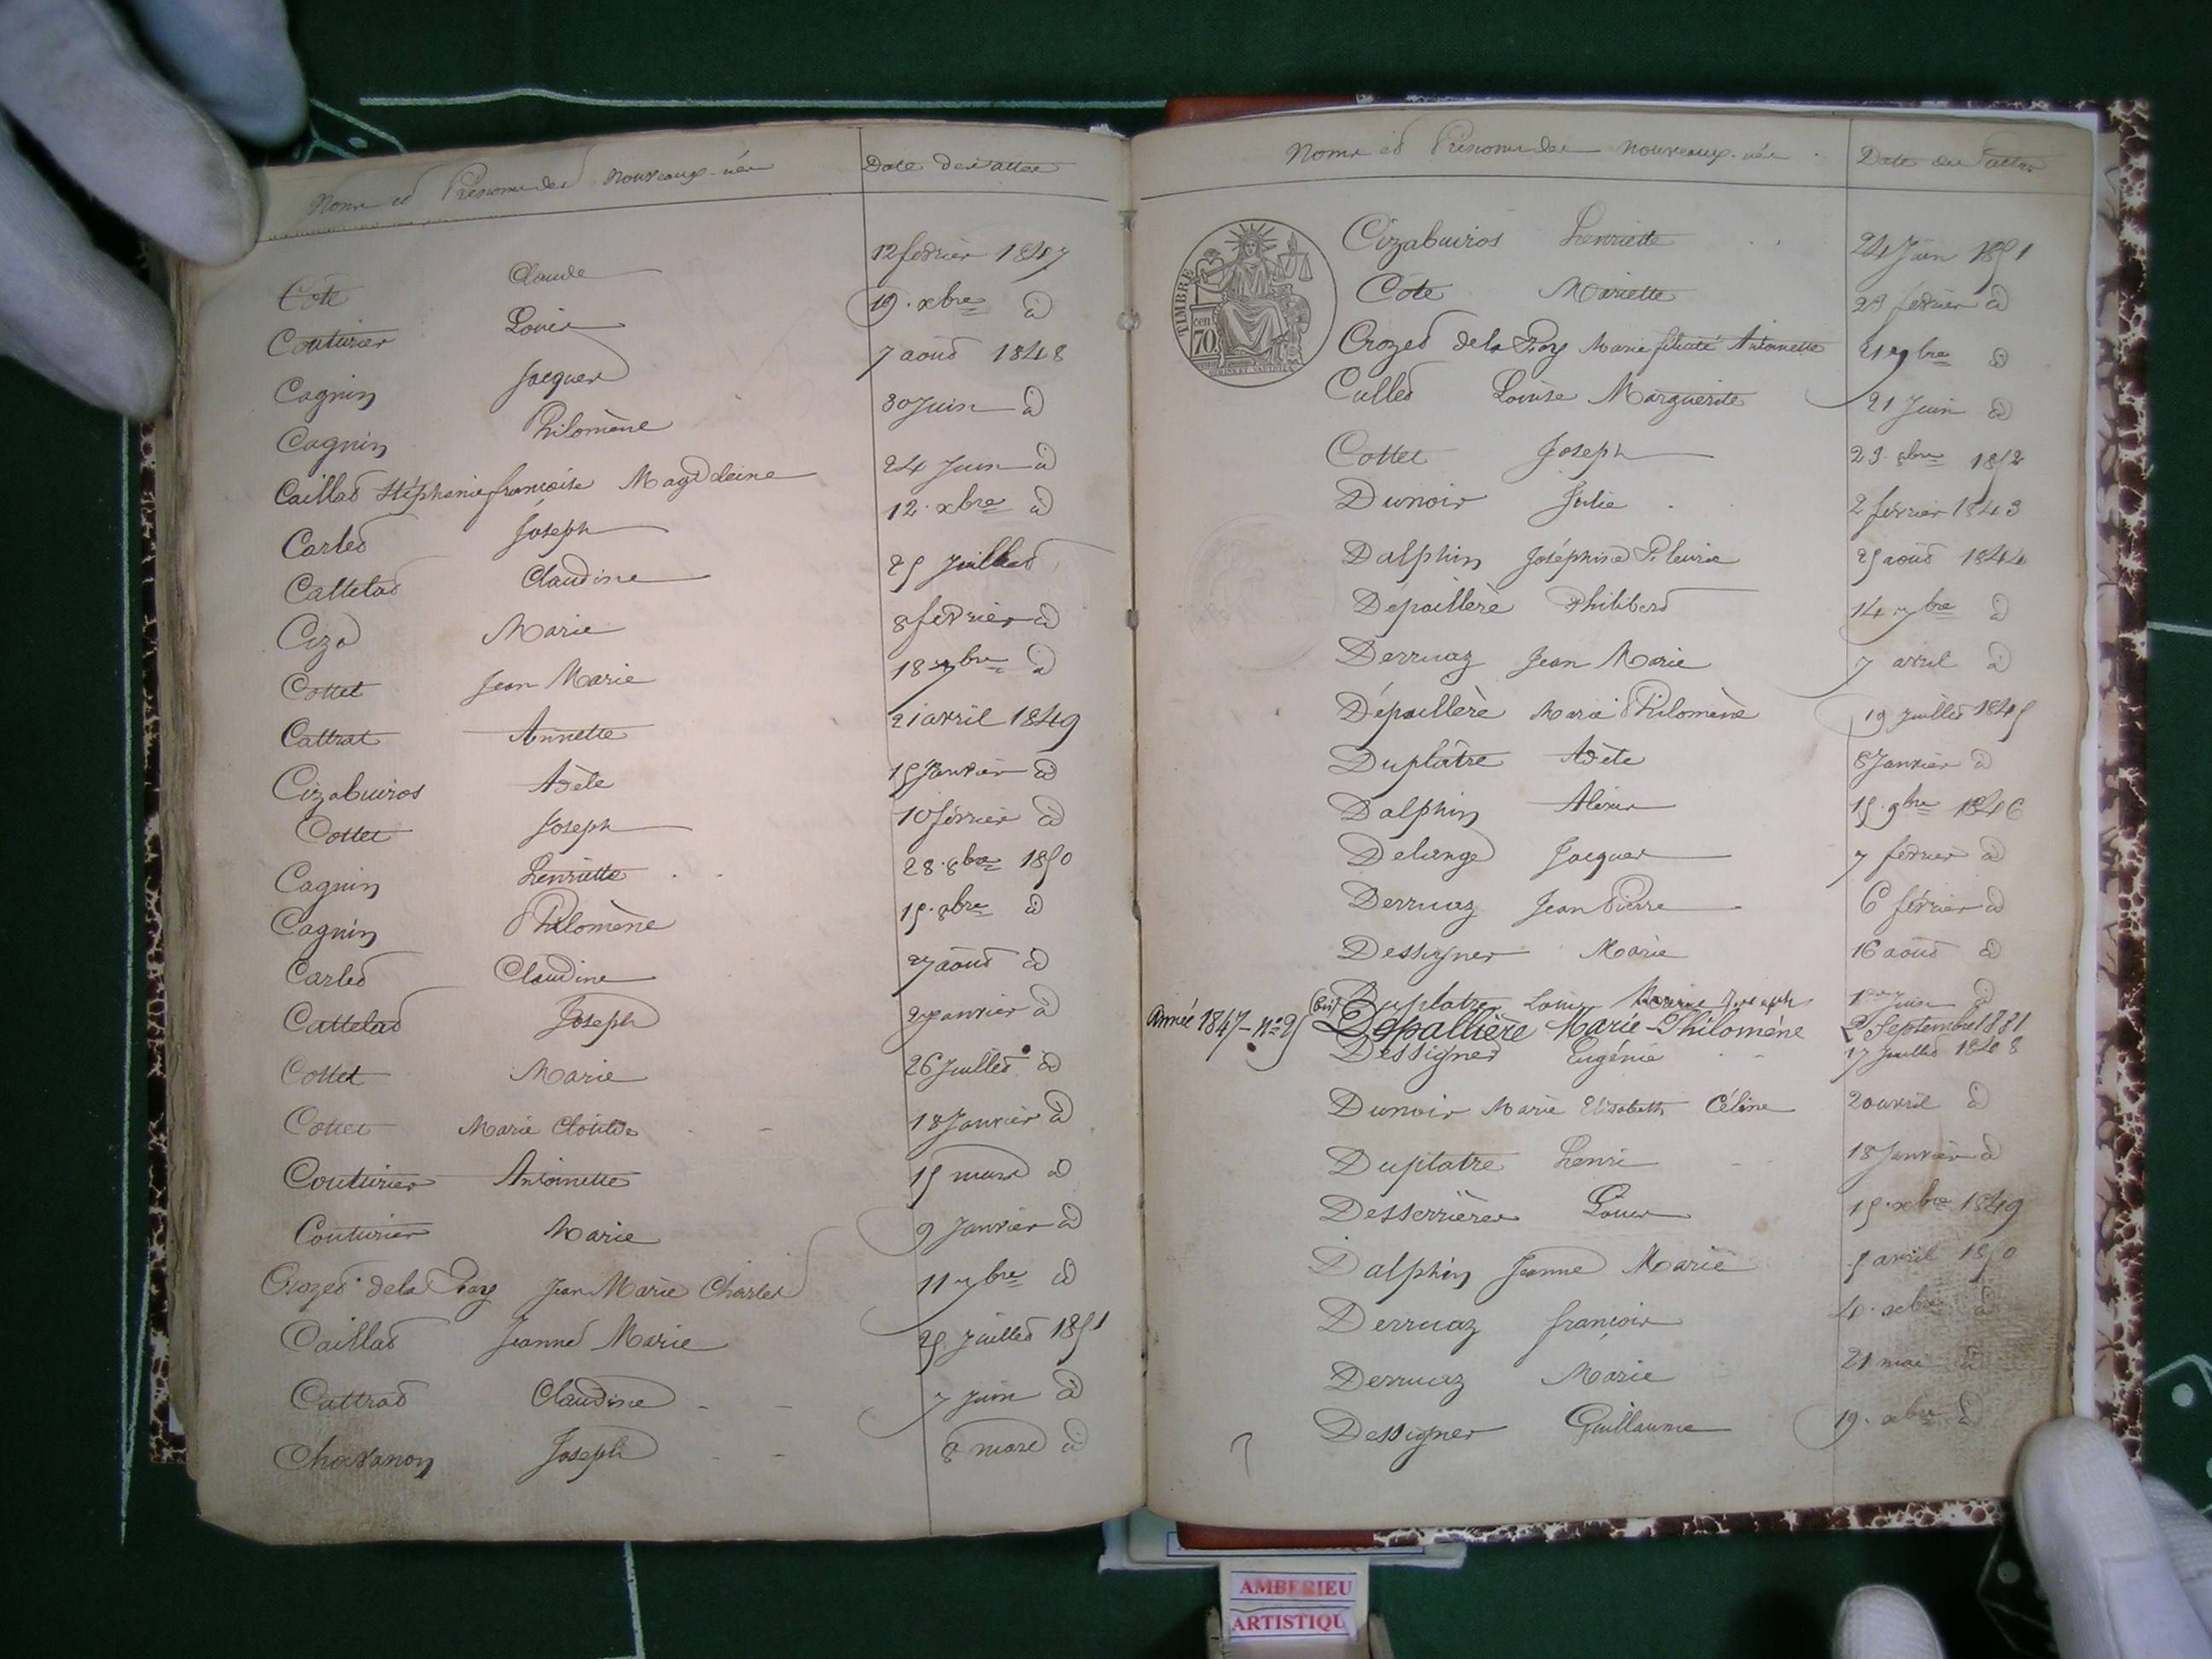 Noms et Prénoms des nouveaux-nés Date des actes
Cote Claude 12 fevrier 1847
Couturier Louis 19 xbre d
Cagnin Jacques 7 aout 1848
Cagnin Philomène 30 Juin d
Caillat Stéphanie françoise Magdeleine 24 Juin d
Carlet Joseph 12 xbre d
Cattelat Claudine 25 Juillet
Ciza Marie 8 fevrier d
Cottet Jean Marie 18 7bre d
Cattrat Annette 21 avril 1849
Cizabuiros Adèle 15 Janvier d
Cottet Joseph 10 février d
Cagnin Henriette 28 8bre 1850
Cagnin Philomène 15 8bre d
Carlet Claudine 27 aout d
Cattelat Joseph 2 Janvier d
Cottet Marie 26 Juillet d
Cottet Marie Clotilde 18 Janvier d
Couturier Antoinette 15 mars d
Couturier Marie 9 Janvier d
Crozet de la Fay Jean Marie Charles 11 7bre d
Caillat Jeanne Marie 25 Juillet 1851
Cattrat Claudine 7 Juin d
Chavanon Joseph 8 mars d
Noms et Prénoms des nouveaux-nés Date des actes
TIMBRE
cen. 70
Cizabuiros Henriette 24 Juin 1851
Cote Mariette 23 fevrier d
Crozet de la Fay Marie félicité Antoinette 21 7bre d
Cullet Louise Marguerite 21 Juin d
Cottet Joseph 23 8bre 1852
Dunoir Julie 2 février 1843
Dalphin Joséphine Fleurie 25 aout 1844
Dépaillère Philibert 14 7bre d
Derruaz Jean Marie 7 avril d
Dépaillère Marie Philomène 19 Juillet 1845
Duplâtre Adèle 8 Janvier d
Dalphin Alexis 15 9bre 1846
Delange Jacques 7 février d
Derruaz Jean Pierre 6 février d
Dessigner Marie 16 aout d
Duplatre Louis Joseph 1er Juin d
Année 1847 - No 25 (bis) Depallière Marie-Philomène 2 Septembre 1881
Dessigner Eugénie 17 Juillet 1848
Dunoir Marie Elisabeth Céline 20 avril d
Duplatre Henri 18 Janvier d
Desserrières Louis 15 xbre 1849
Dalphin Jeanne Marie 5 avril 1850
Derruaz françois 10 xbre d
Derruaz Marie 21 mai d
Dessigner Guillaume 19 xbre d
AMBERIEU
ARTISTIQU